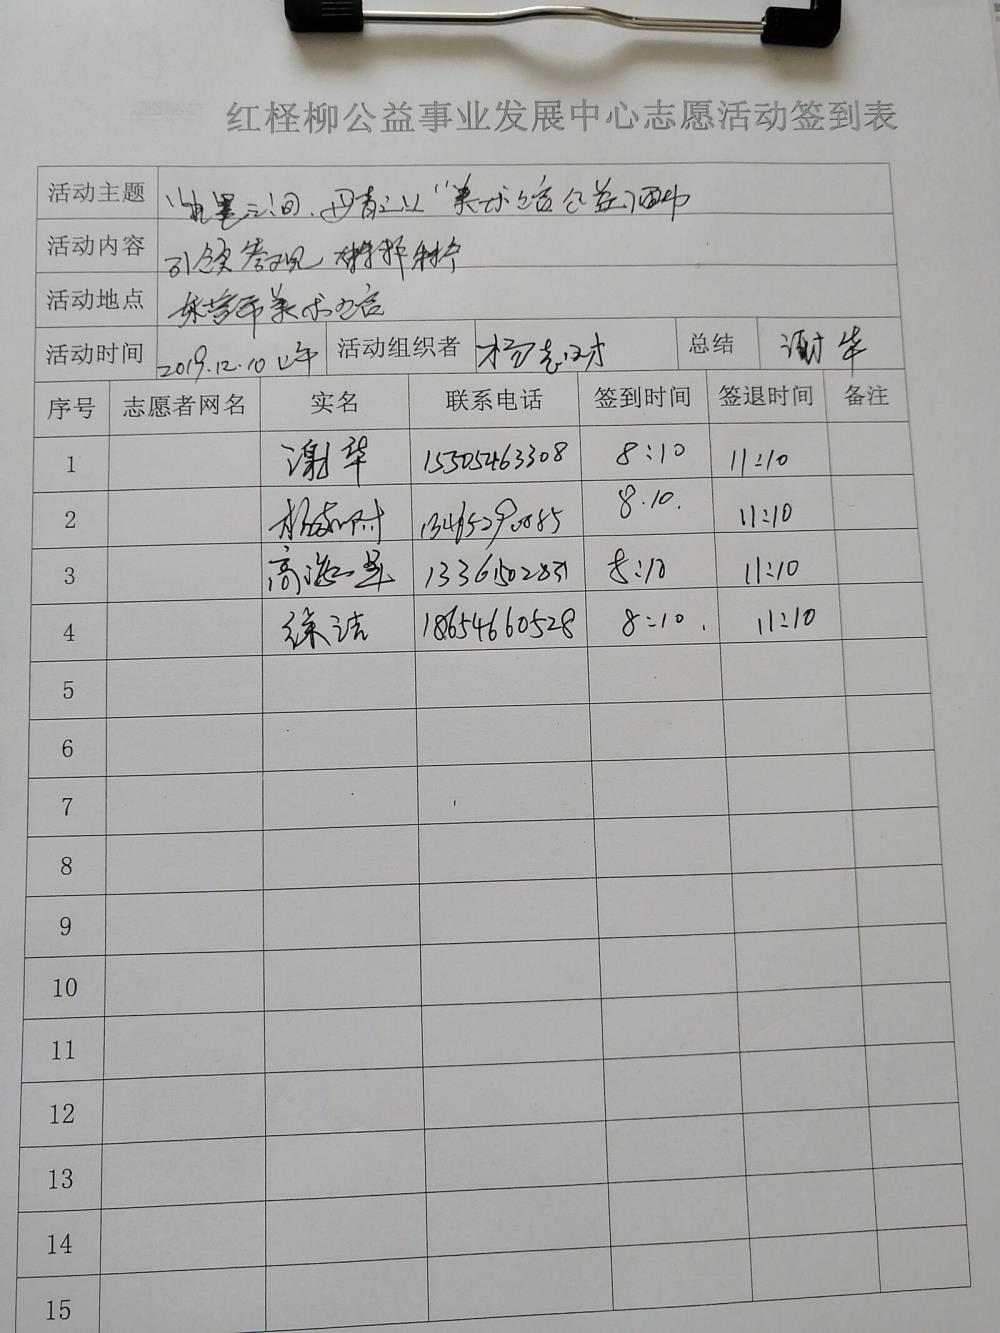 红柽柳公益事业发展中心志愿活动签到表
活动主题 "水墨之间,丹青之以"美术馆公益活动
活动内容 引领参观
活动地点 东营市美术馆
活动时间 2019.12.10上午 活动组织者 总结 谢华
序号 志愿者网名 实名 联系电话 签到时间 签退时间 备注
1 谢华 15505463308 8:10 11:10
2 8.10. 11:10
3 高海星 8:10 11:10
4 徐洁 18654660528 8:10. 11:10
5
6
7
8
9
10
11
12
13
14
15